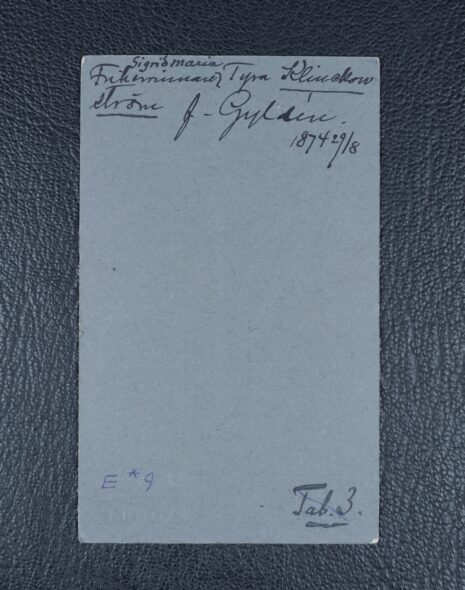 Sigrid maria
Friherrinnan Tyra Klinckow
ström f. Gyldén.
1874 29/8
E * 9
Tab. 3.